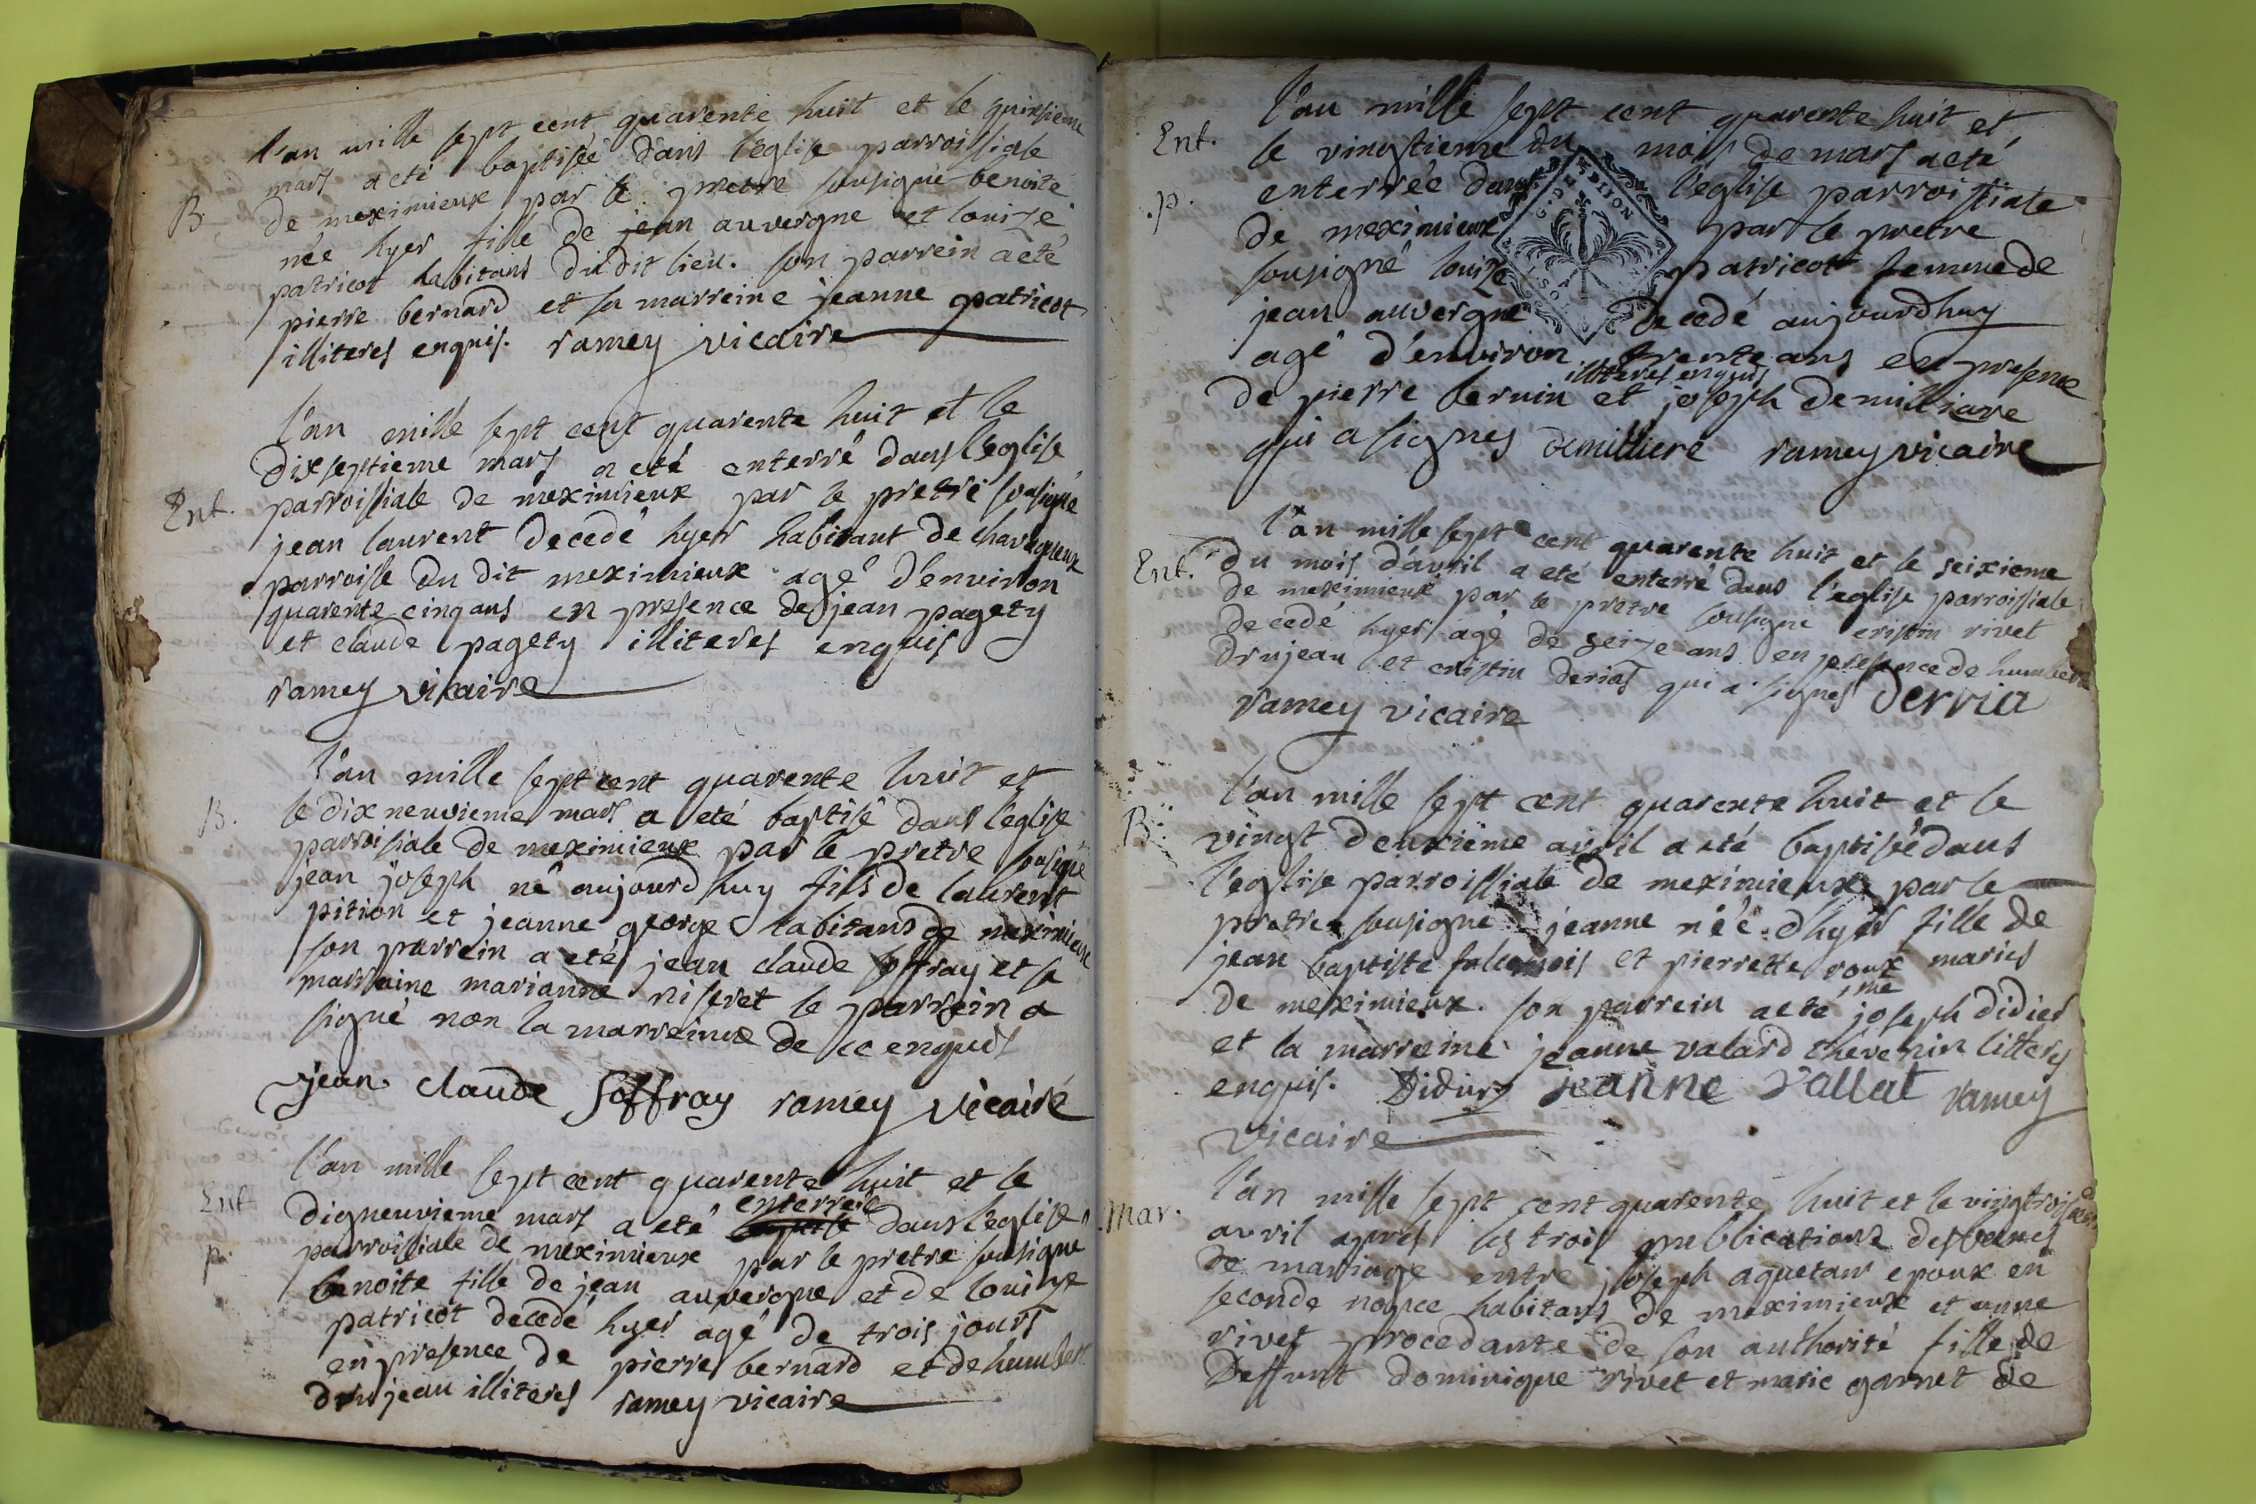 l'an mille sept cent quarente huit et le quinsieme
mars a eté baptisée dans l'eglise parroissiale
B. de meximieux par le pretre sousigné benoite
née hyer fille de jean auvergne et louise
patricot habitans du dit lieu. son parrein a eté
pierre bernard et sa marreine jeanne patricot
illiteres enquis. ramey vicaire
l'an mille sept cent quarente huit et le
dixseptieme mars a eté enterré dans l'eglise
Ent. parroissiale de meximieux par le pretre sousigné
jean laurent decedé hyer habitant de
parroisse du dit meximieux agé d'environ
quarente cinq ans en presence de jean pagety
et claude pagety illiteres enquis
ramey vicaire
l'an mille sept cent quarente huit et
B. le dix neuvieme mars a eté baptisé dans l'eglise
parroissiale de meximieux par le pretre sousigné
jean joseph né aujourdhuy fils de laurent
pition et jeanne george habitans de meximieux
son parrein a eté jean claude soffray et sa
marraine marianne niseret le parrein a
signé non la marreinne de ce enquis
jean claude Soffray ramey vicaire
l'an mille sept cent quarente huit et le
Ent digneuvieme mars a eté enterreé dans l'eglise
p. parroissiale de meximieux par le pretre sousigné
benoite fille de jean auvergne et de louise
patricot decedé hyer agé de trois jours
en presence de pierre bernard et de humbert
drujean illiteres ramey vicaire
l'an mille sept cent quarente huit et
Ent. le vingtieme du mois de mars a eté
p. enterrée dans l'eglise parroissiale
de meximieux par le pretre
sousigné louise patricot femme de
jean auvergne decedé aujourdhuy
agé d'environ trente ans en presence
illiteres enquis
de pierre bernin et joseph demilliere
qui a signes demilliere ramey vicaire
G. D. DIJON
l'an mille sept cent quarente huit et le seixieme
Ent. du mois d'avril a eté enterré dans l'eglise parroissiale
de meximieux par le pretre sousigné cristin rivet
decedé hyer agé de seize ans en presence de humbert
drujean et cristin derias qui a signes Derria
ramey vicaire
l'an mille sept cent quarente huit et le
B. vingt deuxième avril a eté baptisée dans
l'eglise parroissiale de meximieux par le
pretre sousigné jeanne née d'hyer fille de
jean baptiste falconois et pierrette roux maries
me
de meximieux. son parrein a eté joseph didier
et la marreine jeanne valard thévenin litteres
enquis. Didier jeanne Vallat ramey
vicaire
l'an mille sept cent quarente huit et le vingtrois
Mar. avril apres les trois publications des bancs
de mariage entre joseph aquetan epoux en
seconde nopce habitans de meximieux et anne
rivet procedante de son authorité fille de
deffunt dominique rivet et marie garnet de